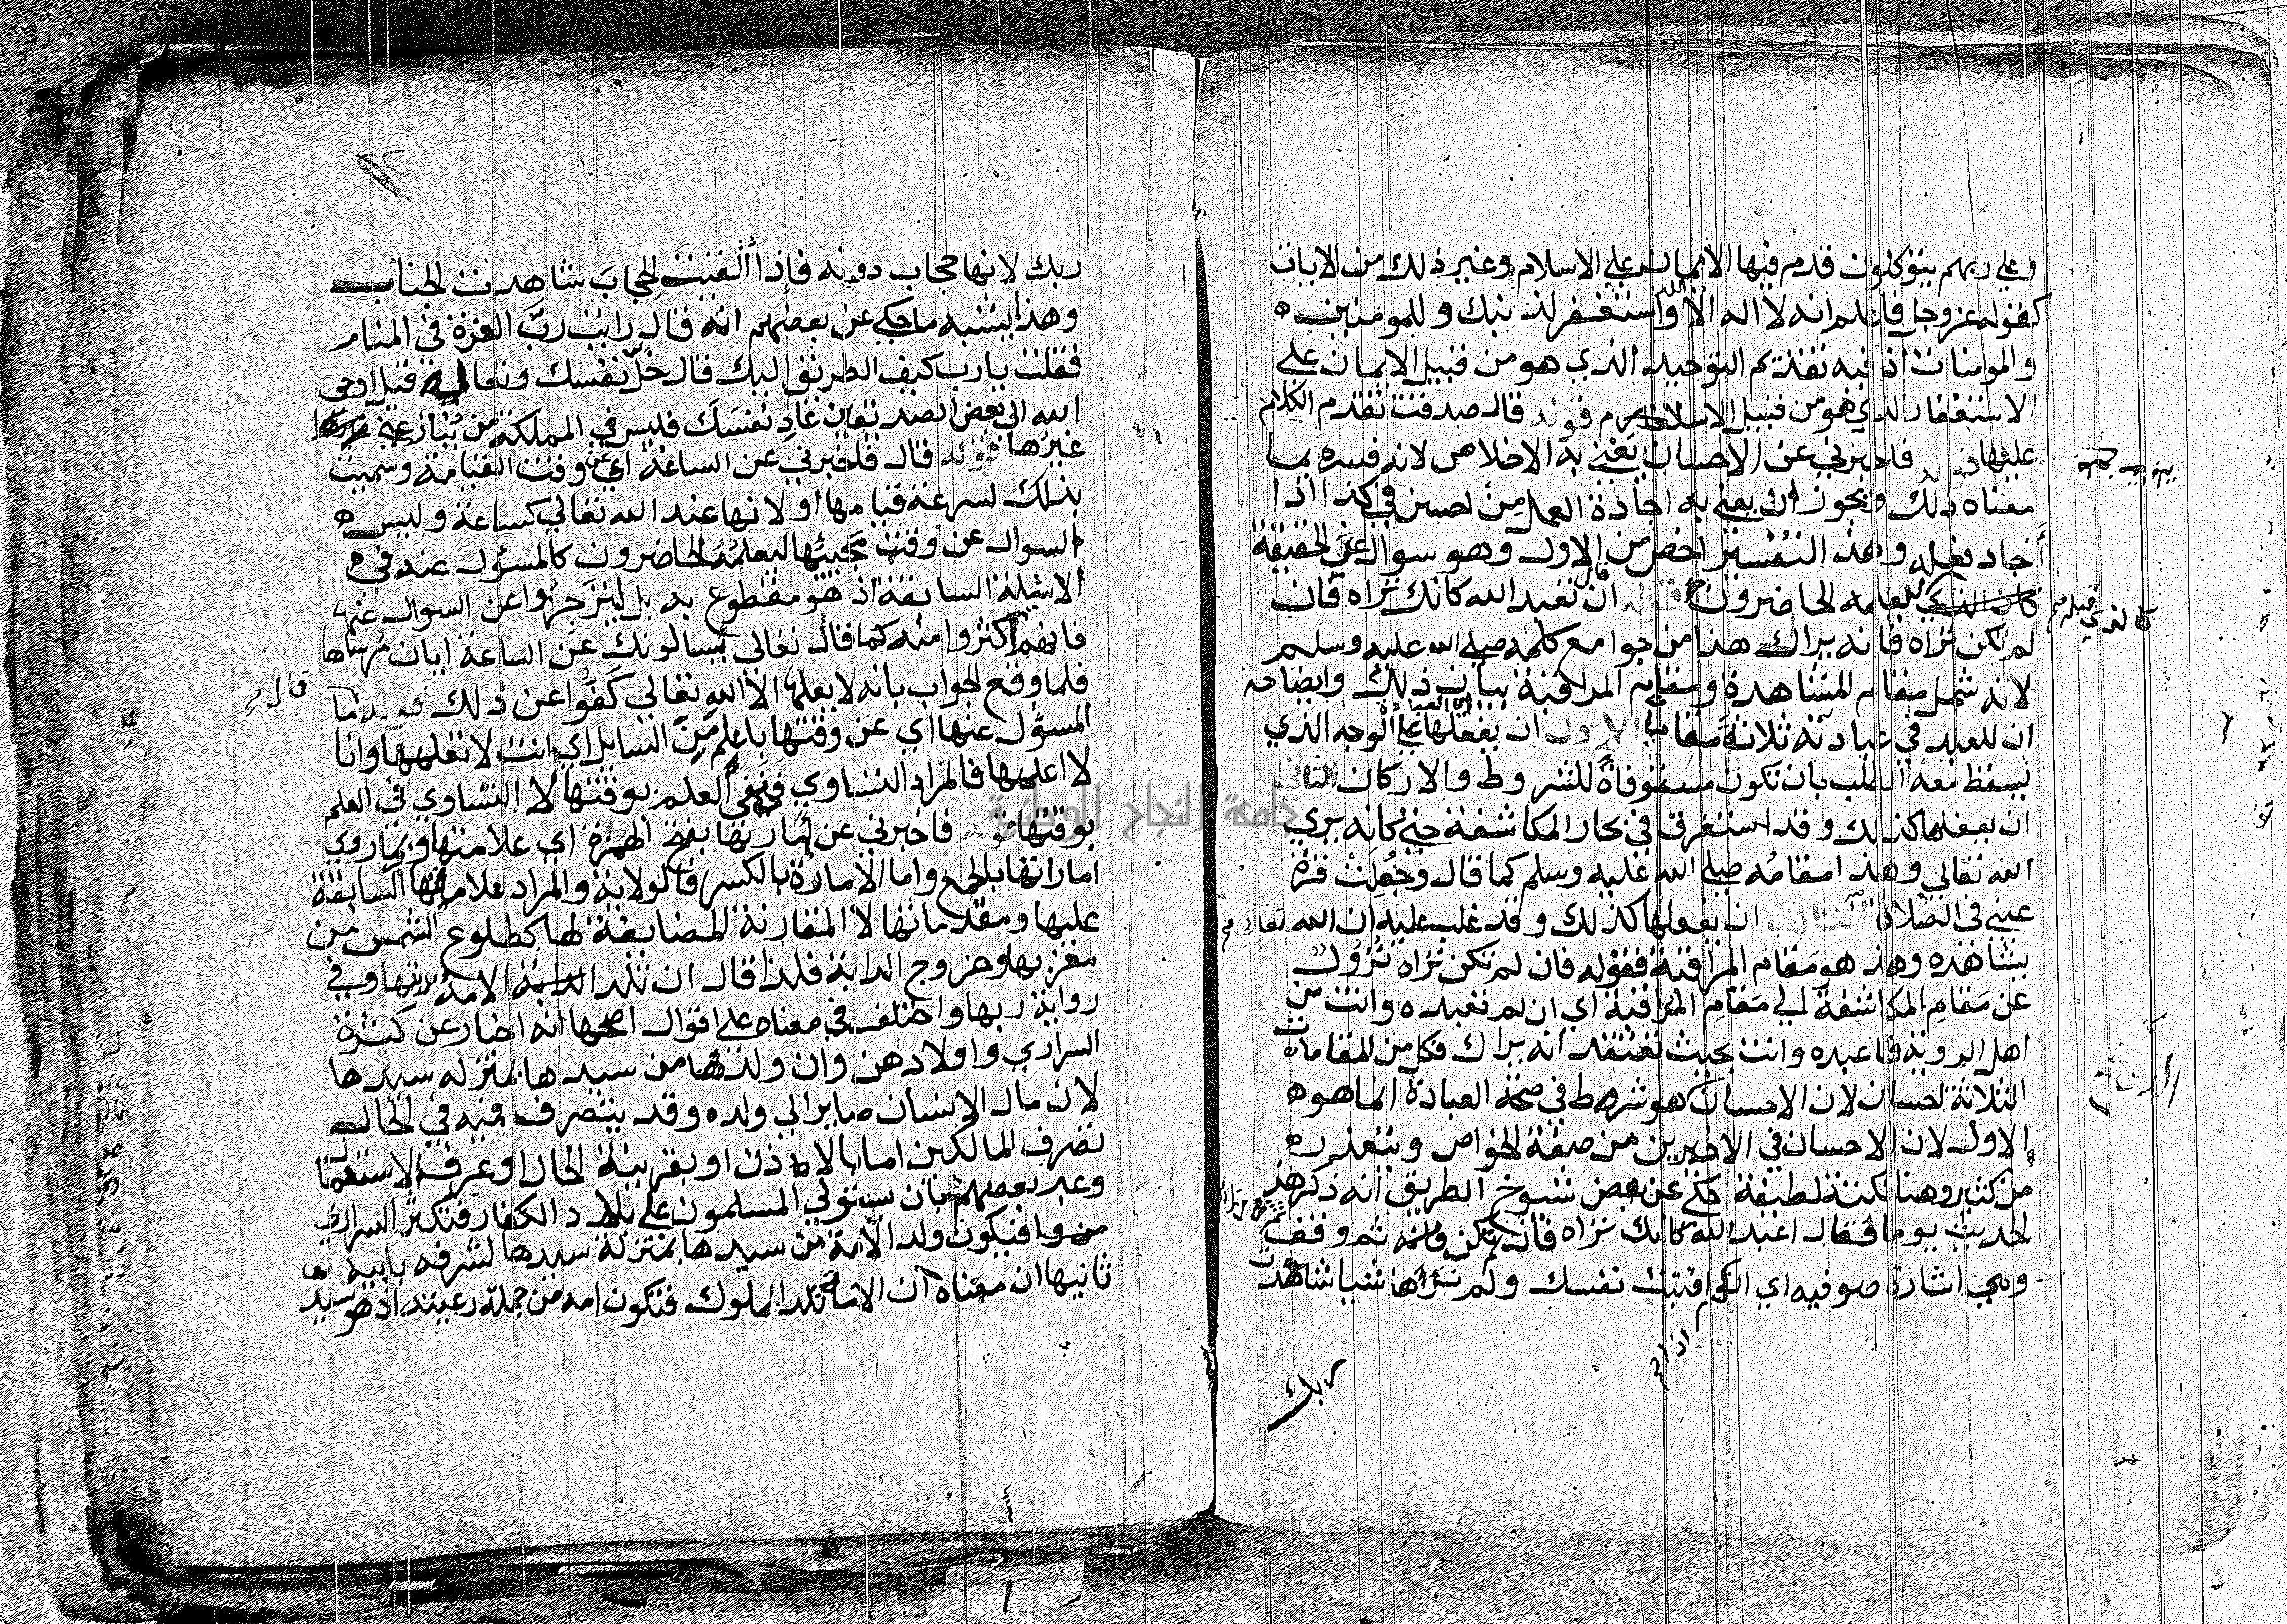 وعلى ربهم يتوكلون قدم فيها الايمان على الاسلام وغير ذلك من الايات
كقوله عز وجل فاعلم انه لا اله الا الله واستغفر لذنبك وللمومنين
والمومنات اذ فيه تقديم التوحيد الذي هو من قبيل الايمان على
الاستغفار الذي هو من قبيل الاسلام قوله قال صدقت تقدم الكلام
عليها قوله فاخبرني عن الاحسان يعني به الاخلاص لانه فسره بما
معناه ذلك ويجوز ان يعني به اجادة العمل من احسن في كذا اذا
اجاد فعله وهذا التفسير اخص من الاول وهو سوال عن الحقيقة
ليعلمه الحاضرون قوله قال ان تعبد الله كانك تراه فان
كالذي قبله صح
لم تكن تراه فانه يراك هذا من جوامع كلمه صلى الله عليه وسلم
لانه شمل مقام المشاهدة ومقام المراقبة بيان ذلك وايضاحه
ان للعبد في عبادته ثلاثة مقامات الاول ان يفعلها على الوجه الذي
اي العبادة
يسقط معه الطلب بان تكون مستوفاة للشروط والاركان الثاني
ان يفعلها كذلك وقد استغرق في بحار المكاشفة حتى كانه يرى
الله تعالى وهذا مقامه صلى الله عليه وسلم كما قال وجُعِلَت قرة
عيني في الصلاة الثالث ان يفعلها كذلك وقد غلب عليه ان الله تعالى صح
يشاهده وهذا هو مقام المراقبة فقوله فان لم تكن تراه نزول
عن مقام المكاشفة الى مقام المراقبة اي ان لم تعبده وانت من
اهل الروية فاعبده وانت بحيث تعتقد انه يراك فكل من المقامات
الثلاثة احسان لان الاحسان الذي هو شرط في صحة العبادة انما هو
الاول لان الاحسان في الاخيرين من صفة الخواص ويتعذر
من كثير وهنا نكتة لطيفة حكي عن بعض شيوخ الطريق انه ذكر هذا
الحديث يوما فقال اعبد الله كانك تراه فان لم تكن ثم وقف
وهي اشارة صوفيه اي انك اذا افنيت نفسك ولم ترها شيا شاهدت
ربك
ربك لانها حجاب دونه فاذا القيت الحجاب شاهدت الجناب
وهذا يشبه ما حكي عن بعضهم انه قال رايت ربّ العزة في المنام
فقلت يا رب كيف الطريق اليك قال خلّ نفسك وتعال قيل اوحى
الله الى بعض الصديقين عادِ نفسَك فليس في المملكة من ينازعني
غيرها قوله قال فاخبرني عن الساعة اي عن وقت القيامة وسميت
بذلك لسرعة قيامها او لانها عند الله تعالى كساعة وليس
السوال عن وقت مجيئها ليعلمه الحاضرون كالمسؤل عنه في
الاسئلة السابقة اذ هو مقطوع به بل لينزجروا عن السوال عنها
فانهم اكثروا منه كما قال تعالى يسالونك عن الساعة ايان مرساها
فلما وقع الجواب بانه لا يعلمها الا الله تعالى كفّوا عن ذلك قوله ما
قال صح
المسؤل عنها اي عن وقتها باعلم من السايل اي انت لا تعلمها وانا
لا اعلمها فالمراد التساوي في نفي العلم بوقتها لا التساوي في العلم
بوقتها قوله فاخبرني عن امارتها بفتح الهمزة اي علامتها وبما روي
اماراتها بالجمع واما الامارة بالكسر فالولاية والمراد علاماتها السابقة
عليها ومقدماتها لا المقارنة المضايقة لها كطلوع الشمس من
مغربها وخروج الدابة فلذا قال ان تلد الامة ربتها وفي
رواية ربها واختلف في معناه على اقوال اصحها انه اخبار عن كثرة
السراري واولادهن وان ولدها من سيدها بمنزلة سيدها
لان مال الانسان صاير الى ولده وقد يتصرف فيه في الحال
تصرف المالكين اما بالاذن او بقرينة الحال او عرف الاستعمال
وعبر بعضهم بان يستولي المسلمون على بلاد الكفار فتكثر السراري
فيكون ولد الامة من سيدها بمنزلة سيدها لشرفه بابيه
ثانيها ان معناه ان الاماء تلد الملوك فتكون امه من جملة رعيته اذ هو سيد
جامعة النجاح الوطنية